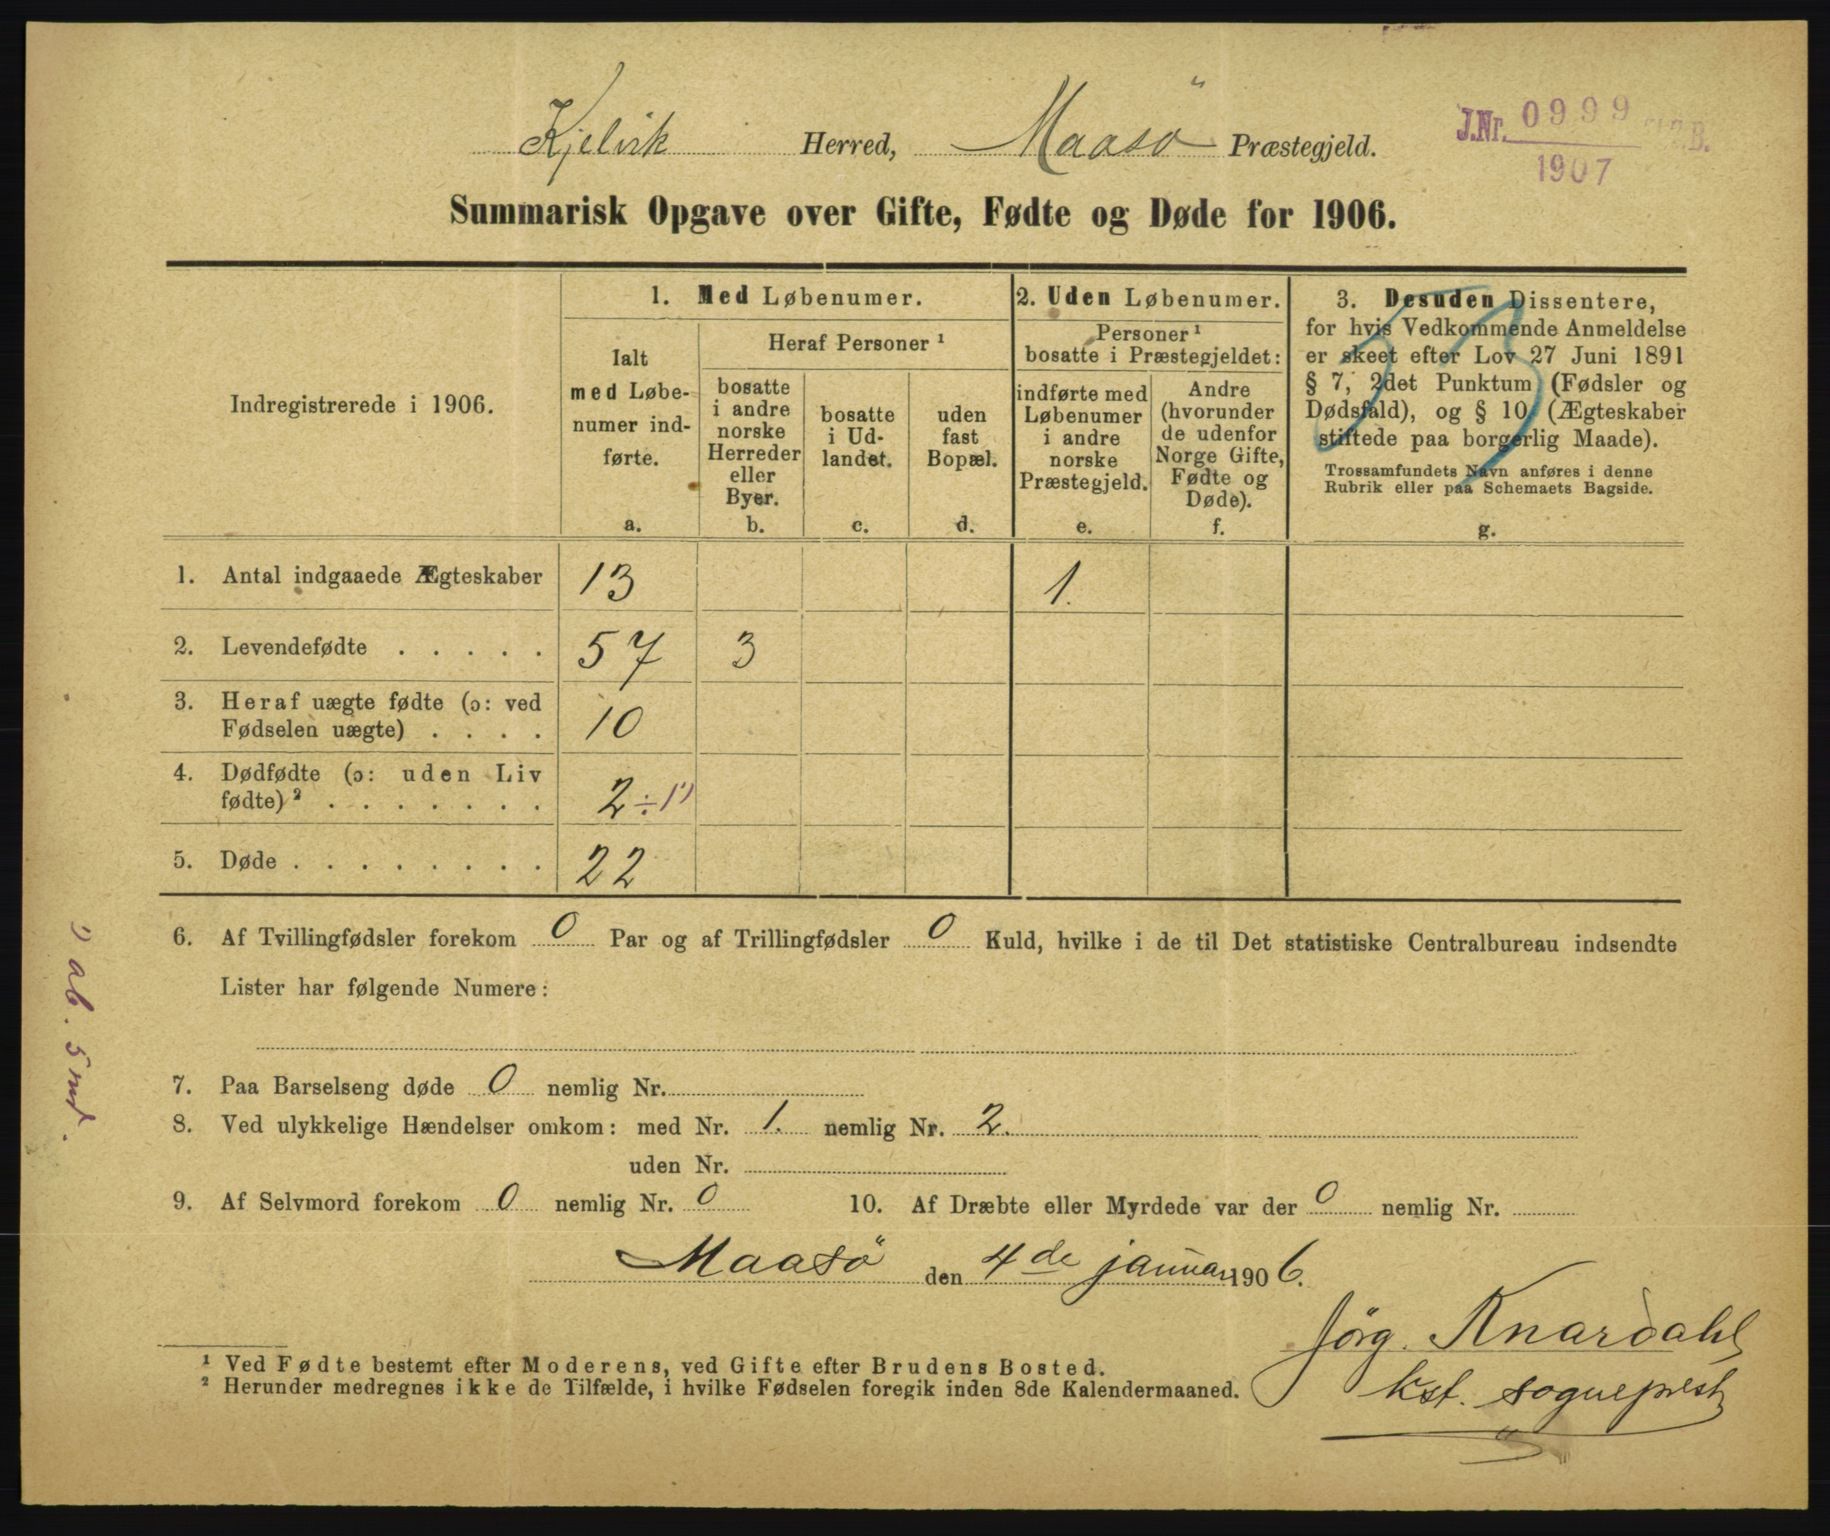 Kjelvik Herred, Maasö Præstegjeld.
J.Nr. 0999
1907
Summarisk Opgave over Gifte, Fødte og Døde for 1906.
Indregistrerede i 1906.
1. Med Løbenumer.
Ialt
med Løbe-
numer ind-
førte.
a.
Heraf Personer ¹
bosatte
i andre
norske
Herreder
eller
Byer.
b.
bosatte
i Ud-
landet.
c.
uden
fast
Bopæl.
d.
2. Uden Løbenumer.
Personer ¹
bosatte i Præstegjeldet:
indførte med
Løbenumer
i andre
norske
Præstegjeld.
e.
Andre
(hvorunder
de udenfor
Norge Gifte,
Fødte og
Døde).
f.
3. Desuden Dissentere,
for hvis Vedkommende Anmeldelse
er skeet efter Lov 27 Juni 1891
§ 7, 2det Punktum (Fødsler og
Dødsfald), og § 10 (Ægteskaber
stiftede paa borgerlig Maade).
Trossamfundets Navn anføres i denne
Rubrik eller paa Schemaets Bagside.
g.
1. Antal indgaaede Ægteskaber 13 1.
2. Levendefødte . . . . . 57 3
3. Heraf uægte fødte (ɔ: ved
Fødselen uægte) . . . . 10
4. Dødfødte (ɔ: uden Liv
fødte) ² . . . . . . . 2 ÷ 1¹⁾
5. Døde . . . . . . . . 22
6. Af Tvillingfødsler forekom 0 Par og af Trillingfødsler 0 Kuld, hvilke i de til Det statistiske Centralbureau indsendte
Lister har følgende Numere:
7. Paa Barselseng døde 0 nemlig Nr.
8. Ved ulykkelige Hændelser omkom: med Nr. 1. nemlig Nr. 2.
uden Nr.
9. Af Selvmord forekom 0 nemlig Nr. 0 10. Af Dræbte eller Myrdede var der 0 nemlig Nr.
Maasö den 4de januar 1906.
Jörg. Knardahl
kst. sogneprest
¹ Ved Fødte bestemt efter Moderens, ved Gifte efter Brudens Bosted.
² Herunder medregnes ikke de Tilfælde, i hvilke Fødselen foregik inden 8de Kalendermaaned.
¹⁾ ab. 5 md.